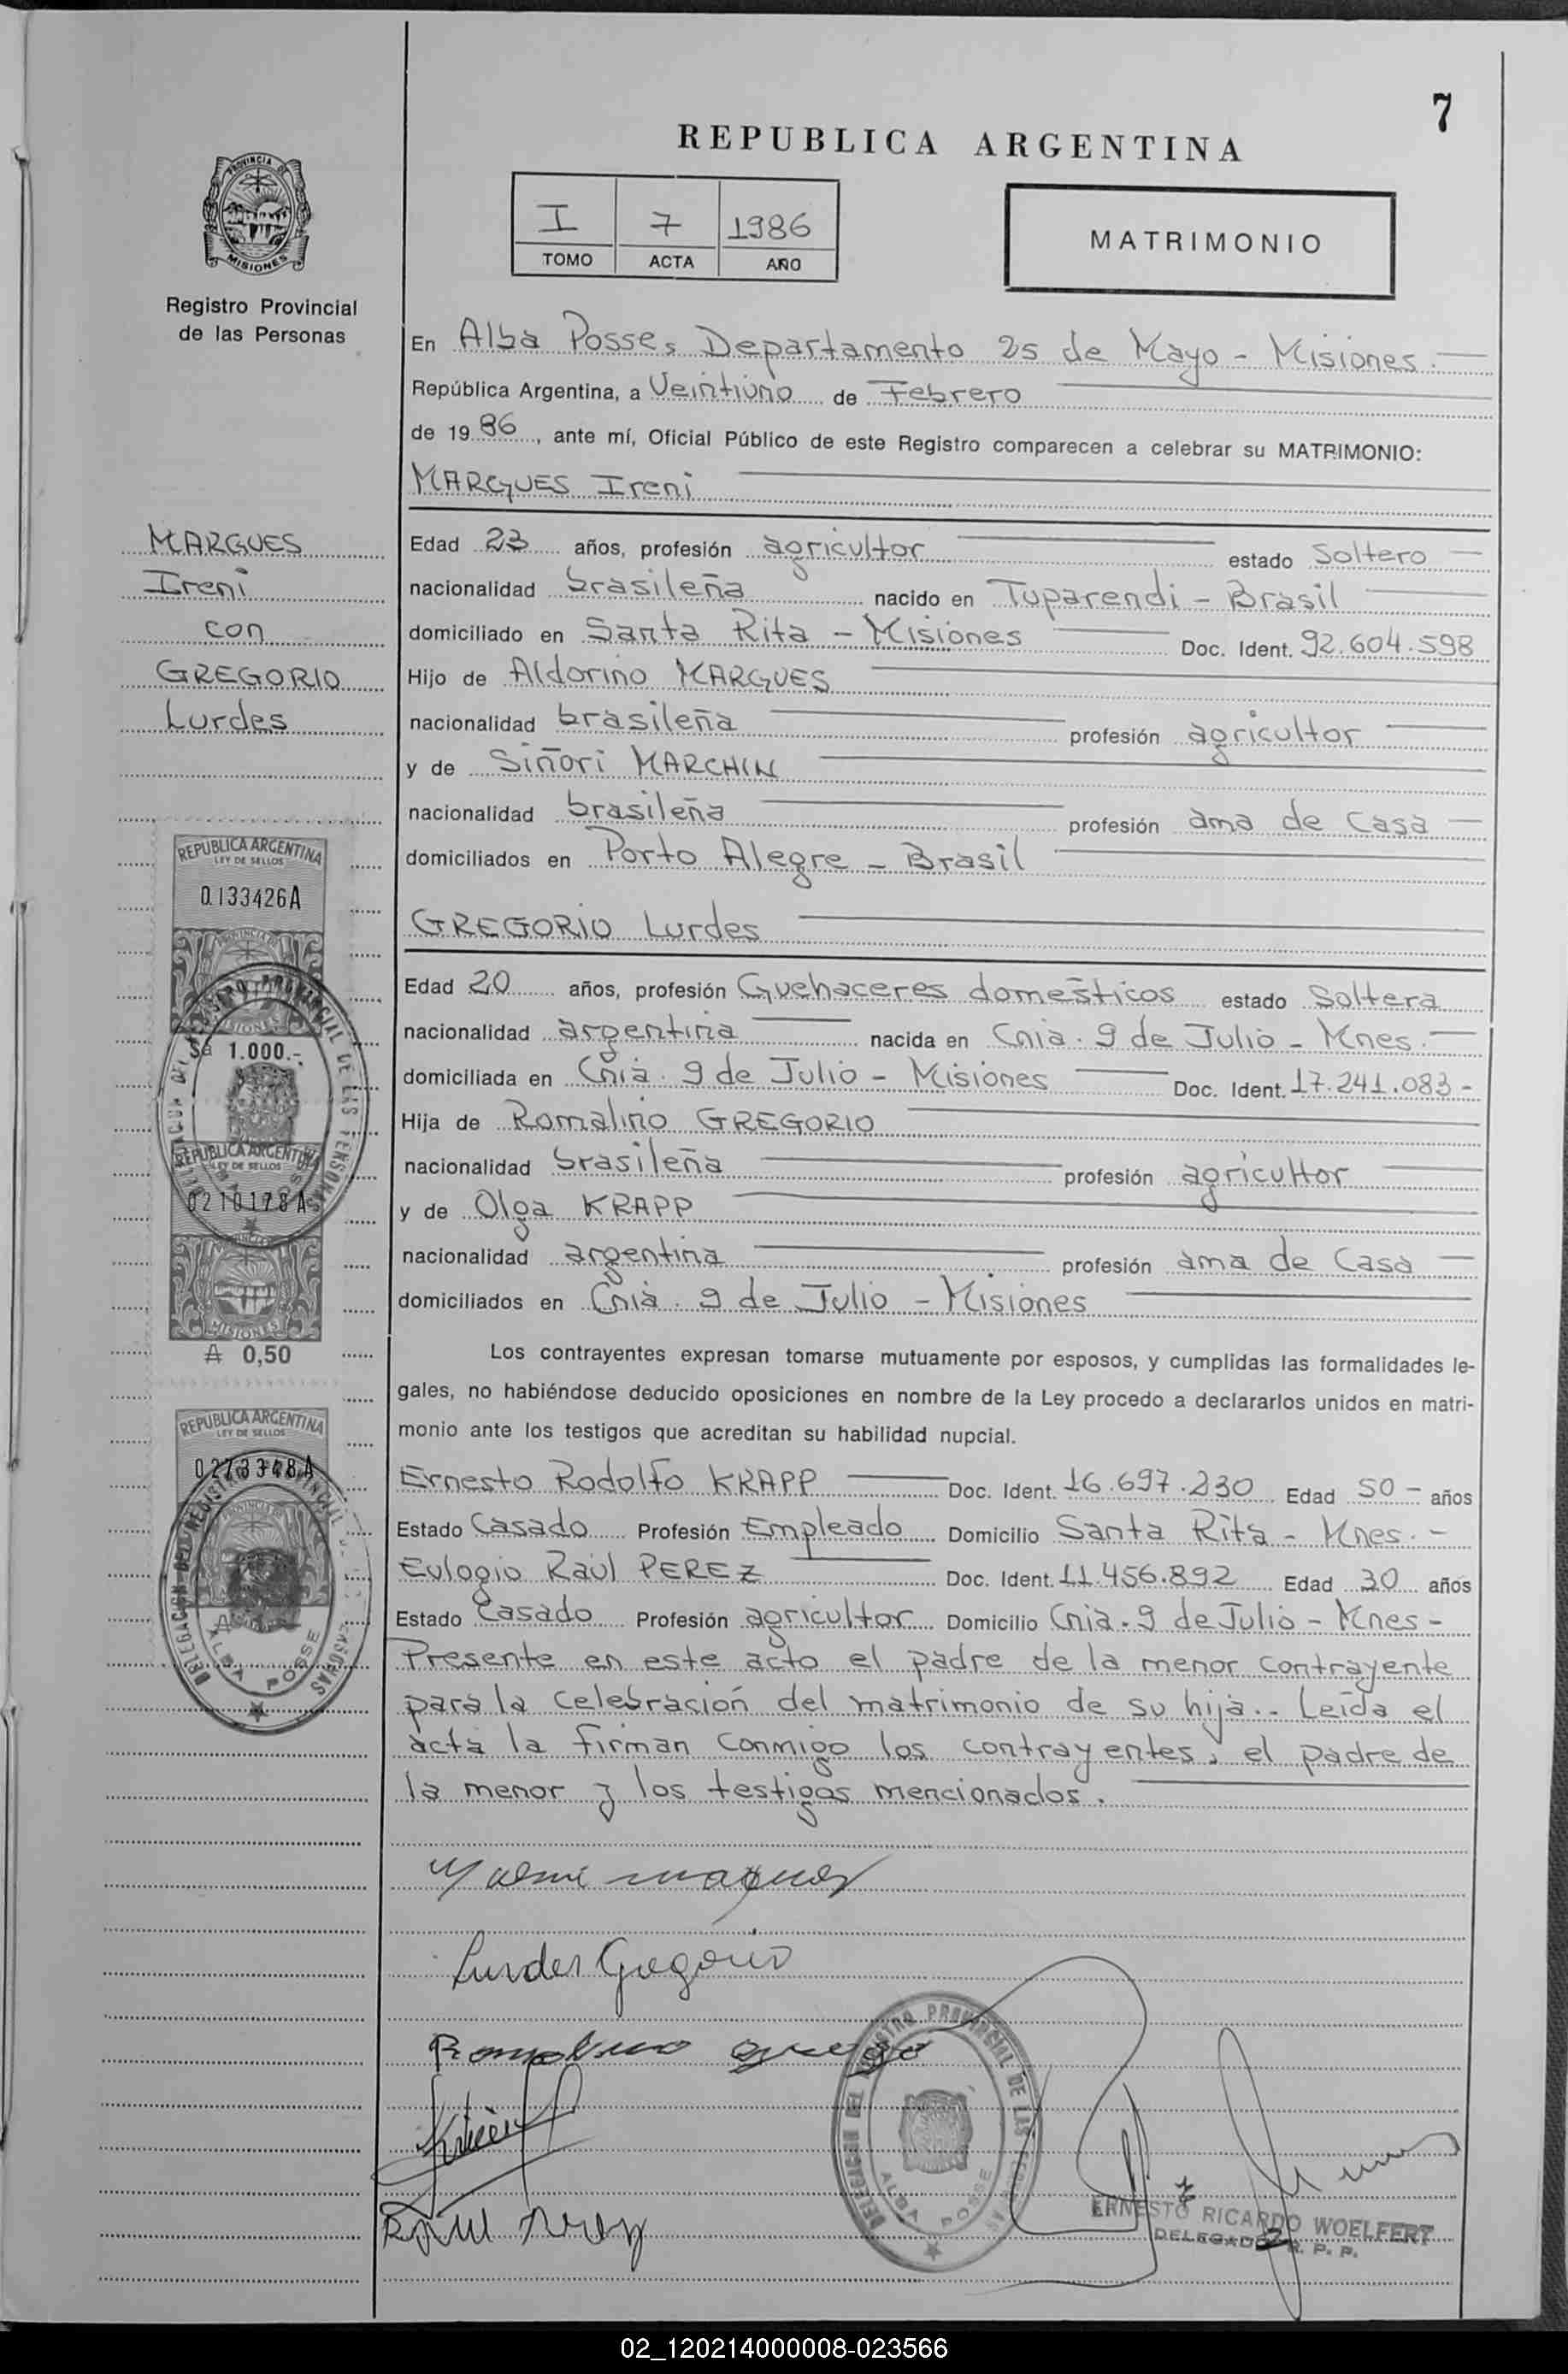 7
REPUBLICA ARGENTINA
I 7 1986
TOMO ACTA AÑO
MATRIMONIO
PROVINCIA DE
MISIONES
Registro Provincial
de las Personas
En Alba Posse, Departamento 25 de Mayo - Misiones.
República Argentina, a Veintiuno de Febrero
de 1986, ante mí, Oficial Público de este Registro comparecen a celebrar su MATRIMONIO:
MARQUES Ireni
MARQUES
Ireni
con
GREGORIO
Lurdes
Edad 23 años, profesión agricultor estado Soltero
nacionalidad brasileña nacido en Tuparendi - Brasil
domiciliado en Santa Rita - Misiones Doc. Ident. 92.604.598
Hijo de Aldorino MARQUES
nacionalidad brasileña profesión agricultor
y de Siñori MARCHIN
nacionalidad brasileña profesión ama de Casa
domiciliados en Porto Alegre - Brasil
GREGORIO Lurdes
Edad 20 años, profesión Quehaceres domésticos estado Soltera
nacionalidad argentina nacida en Cnia. 9 de Julio - Mnes.
domiciliada en Cnia. 9 de Julio - Misiones Doc. Ident. 17.241.083-
Hija de Romalino GREGORIO
nacionalidad brasileña profesión agricultor
y de Olga KRAPP
nacionalidad argentina profesión ama de Casa
domiciliados en Cnia. 9 de Julio - Misiones
Los contrayentes expresan tomarse mutuamente por esposos, y cumplidas las formalidades le-
gales, no habiéndose deducido oposiciones en nombre de la Ley procedo a declararlos unidos en matri-
monio ante los testigos que acreditan su habilidad nupcial.
Ernesto Rodolfo KRAPP Doc. Ident. 16.697.230 Edad 50 - años
Estado Casado Profesión Empleado Domicilio Santa Rita - Mnes. -
Eulogio Raúl PEREZ Doc. Ident. 11.456.892 Edad 30 años
Estado Casado Profesión agricultor Domicilio Cnia. 9 de Julio - Mnes -
Presente en este acto el padre de la menor contrayente
para la celebración del matrimonio de su hija.. Leída el
acta la firman conmigo los contrayentes, el padre de
la menor y los testigos mencionados.
REPUBLICA ARGENTINA
LEY DE SELLOS
0133426A
MISIONES
$a 1.000.-
REPUBLICA ARGENTINA
LEY DE SELLOS
0210178A
MISIONES
₳ 0,50
REPUBLICA ARGENTINA
LEY DE SELLOS
0273348A
DELEGACION DEL REGISTRO PROVINCIAL DE LAS PERSONAS
ALBA POSSE
Lurdes Gregorio
Romalino
Raul Perez
DELEGACION DEL REGISTRO PROVINCIAL DE LAS
ALBA POSSE
ERNESTO RICARDO WOELFERT
DELEGADO R. P. P.
02_120214000008-023566